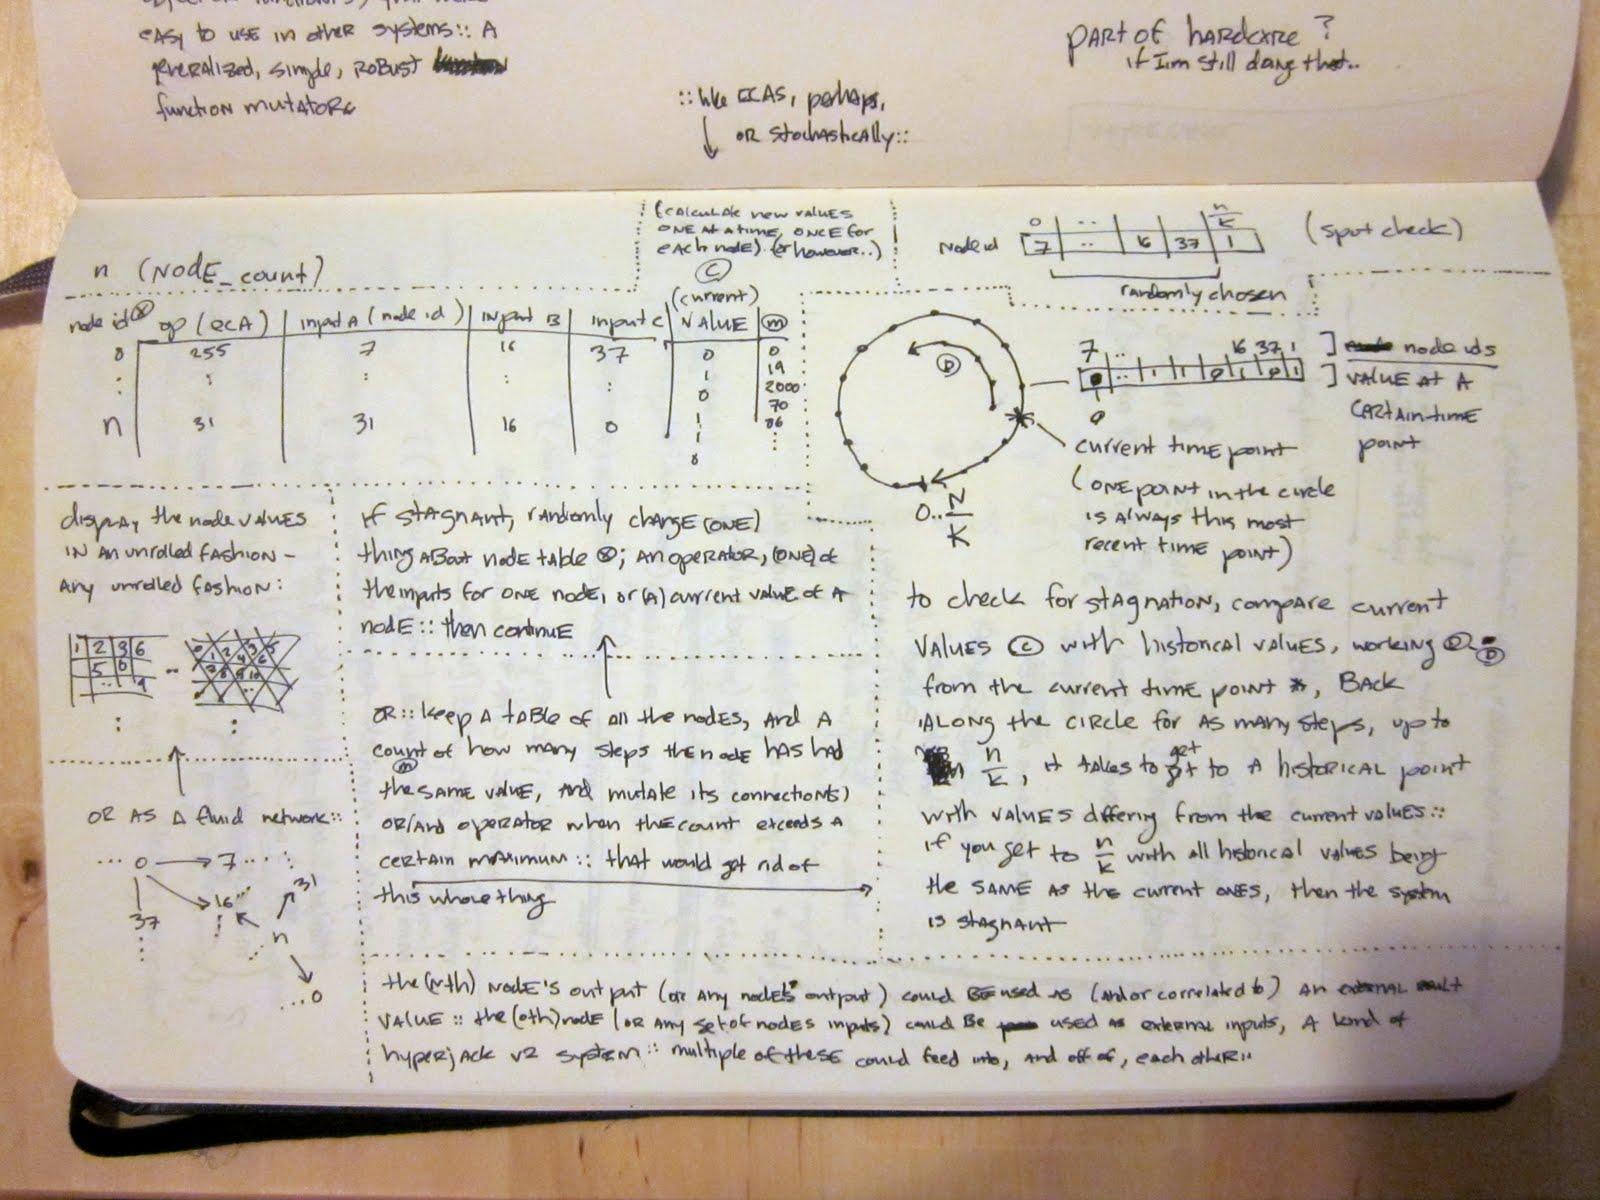 easy to use in other systems:: A
generalized, simple, robust
function mutators
:: like ECAS, perhaps,
or stochastically::
part of hardcore?
if I'm still doing that..
n (NODE_count)
(calculate new values
ONE at a time, once for
each node) (or however..)
C
(current)
node id op (ECA) input A (node id) INput B input C VALUE m
0 255 7 16 37 0 0
: : : : : 1 19
0 2000
70
n 31 31 16 0 1 86
1 :
0
Node id
0 .. n/k
7 .. 16 37 1
(spot check)
randomly chosen
D
7 .. 16 37 1 ] node ids
0 .. 1 1 0 1 0 1 ] VALUE AT A
certain time
point
0
current time point
(ONE point in the circle
is always this most
recent time point)
0..N/K
display the node values
IN AN unrolled fashion –
any unrolled fashion:
1 2 3 6
5 0
.. 9
..
OR AS A fluid network::
... 0 → 7 ...
16
37
31
n
...0
if stagnant, randomly change (ONE)
thing about node table ⊗; an operator, (one) of
the inputs for ONE node, or (a) current value of a
node:: then continue
OR:: keep a table of all the nodes, and a
count of how many steps the node has had
m
the same value, and mutate its connection(s)
or/and operator when the count exceeds a
certain maximum:: that would get rid of
this whole thing
to check for stagnation, compare current
values C with historical values, working D
from the current time point *, BACK
ALONG the circle for as many steps, up to
n/k, it takes to get to a historical point
with values differing from the current values::
if you get to n/k with all historical values being
the same as the current ones, then the system
is stagnant
the (Nth) node's output (or any node's output) could BE used as (and/or correlated to) an external
value:: the (0th) node (or any set of nodes inputs) could be used as external inputs, a kind of
hyperjack v2 system:: multiple of these could feed into, and off of, each other::